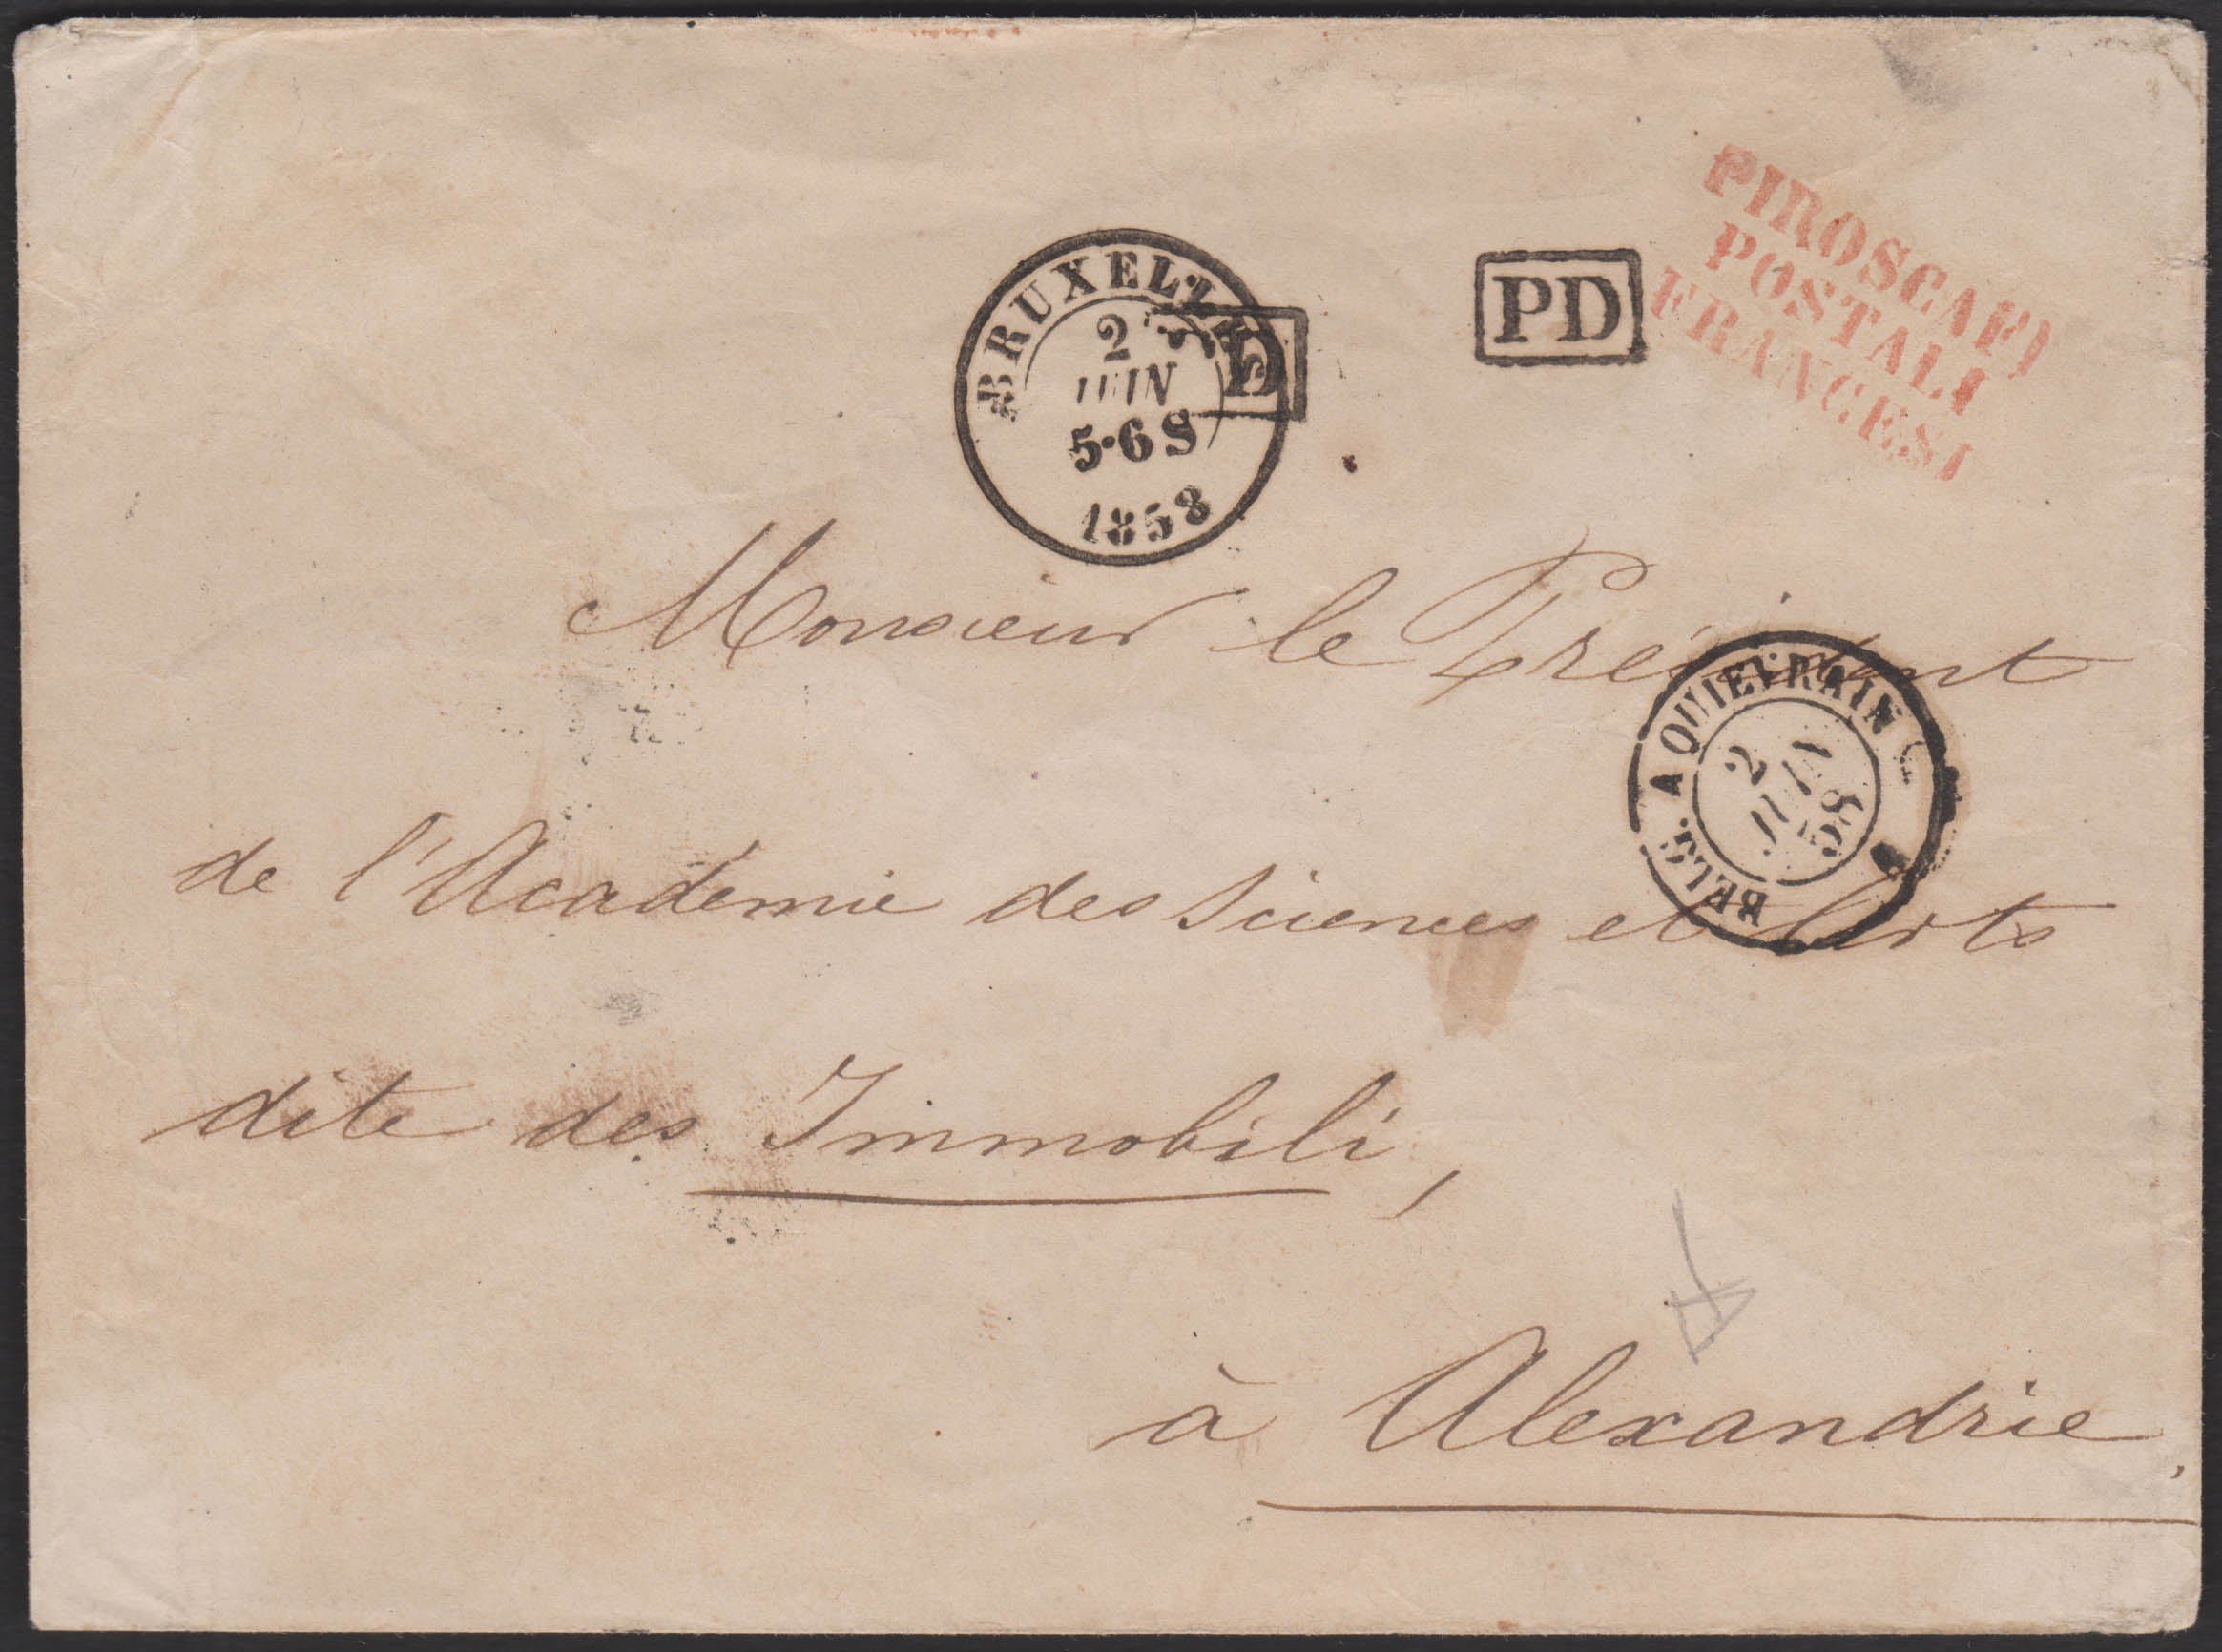 BRUXELLES
2
JUIN
5·6 S
1858
PD
PD
PIROSCAFI
POSTALI
FRANCESI
Monsieur le Président
BELG. A QUIEVRAIN
2
JUIN
58
de l'Academie des Sciences et Arts
dite des Immobili,
à Alexandrie,